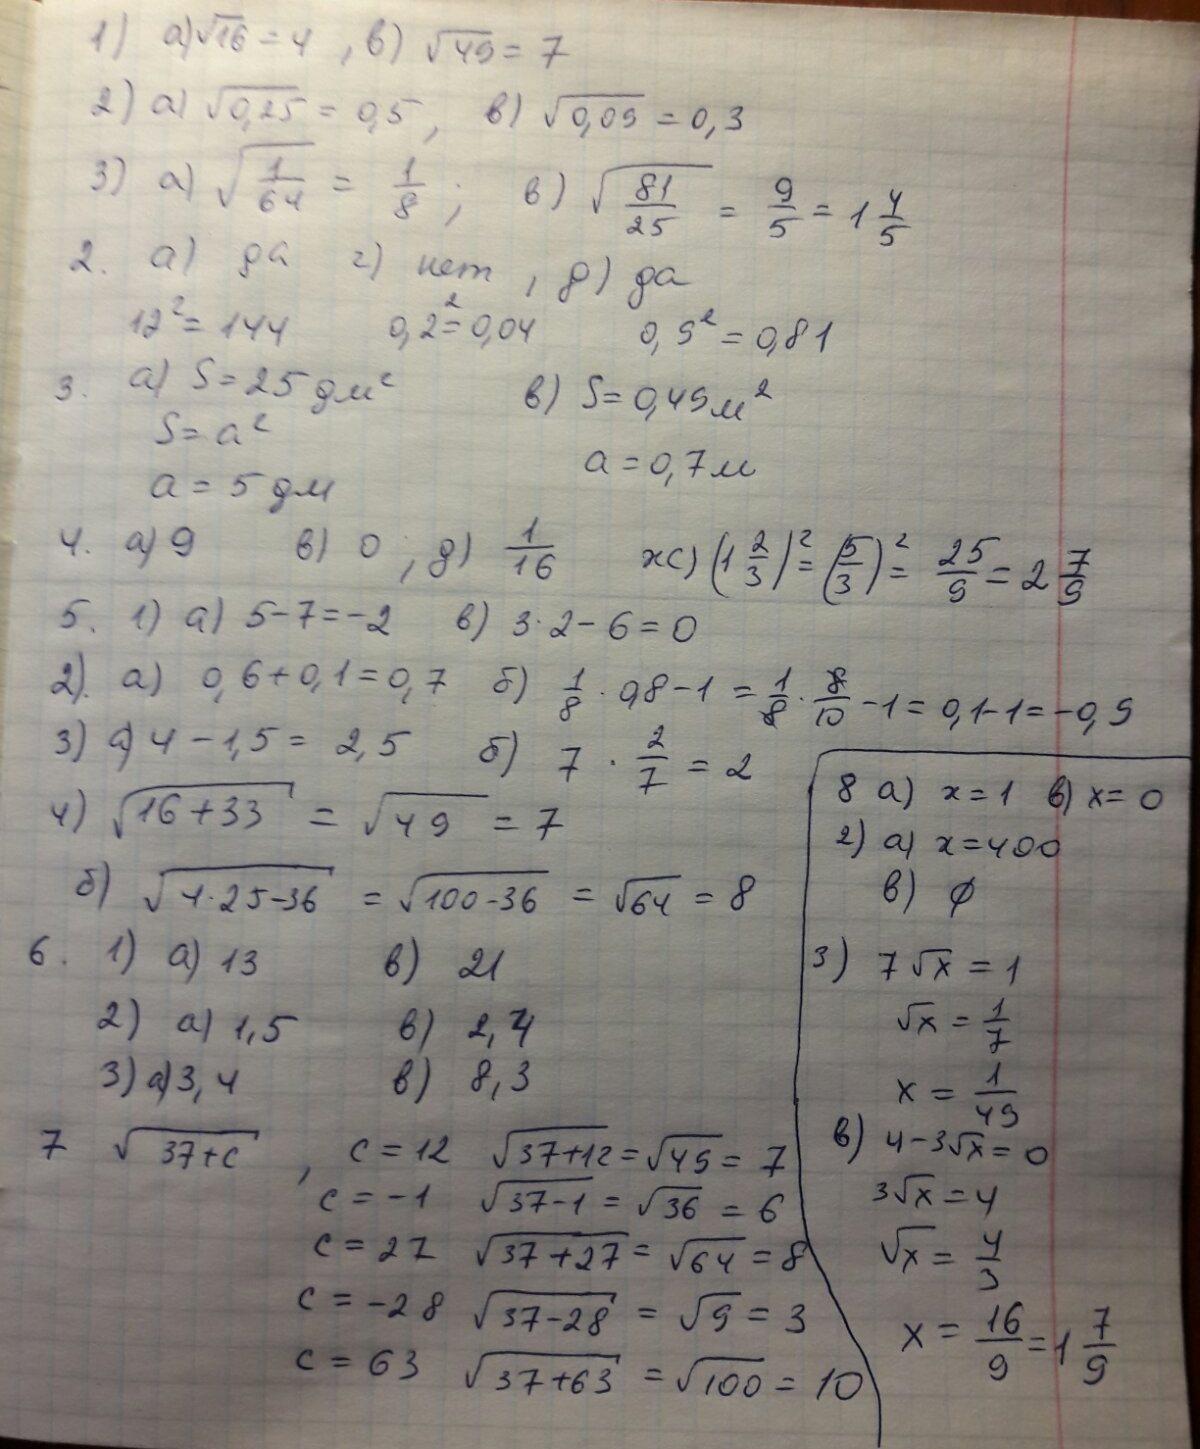 1) а) √16 = 4 , в) √49 = 7
2) а) √0,25 = 0,5 , в) √0,09 = 0,3
3) а) √(1/64) = 1/8 ; в) √(81/25) = 9/5 = 1 4/5
2. а) да г) нет , д) да
12² = 144 0,2² = 0,04 0,9² = 0,81
3. а) S = 25 дм² в) S = 0,49 м²
S = a²
a = 5 дм a = 0,7 м
4. а) 9 в) 0 , д) 1/16 ж) (1 2/3)² = (5/3)² = 25/9 = 2 7/9
5. 1) а) 5 - 7 = -2 в) 3·2 - 6 = 0
2) а) 0,6 + 0,1 = 0,7 б) 1/8 · 0,8 - 1 = 1/8 · 8/10 - 1 = 0,1 - 1 = -0,9
3) а) 4 - 1,5 = 2,5 б) 7 · 2/7 = 2
4) √(16+33) = √49 = 7
б) √(4·25-36) = √(100-36) = √64 = 8
6. 1) а) 13 в) 21
2) а) 1,5 в) 2,4
3) а) 3,4 в) 8,3
7 √(37+c) , c = 12 √(37+12) = √49 = 7
c = -1 √(37-1) = √36 = 6
c = 27 √(37+27) = √64 = 8
c = -28 √(37-28) = √9 = 3
c = 63 √(37+63) = √100 = 10
8 а) x = 1 в) x = 0
2) а) x = 400
в) ∅
3) 7√x = 1
√x = 1/7
x = 1/49
в) 4 - 3√x = 0
3√x = 4
√x = 4/3
x = 16/9 = 1 7/9